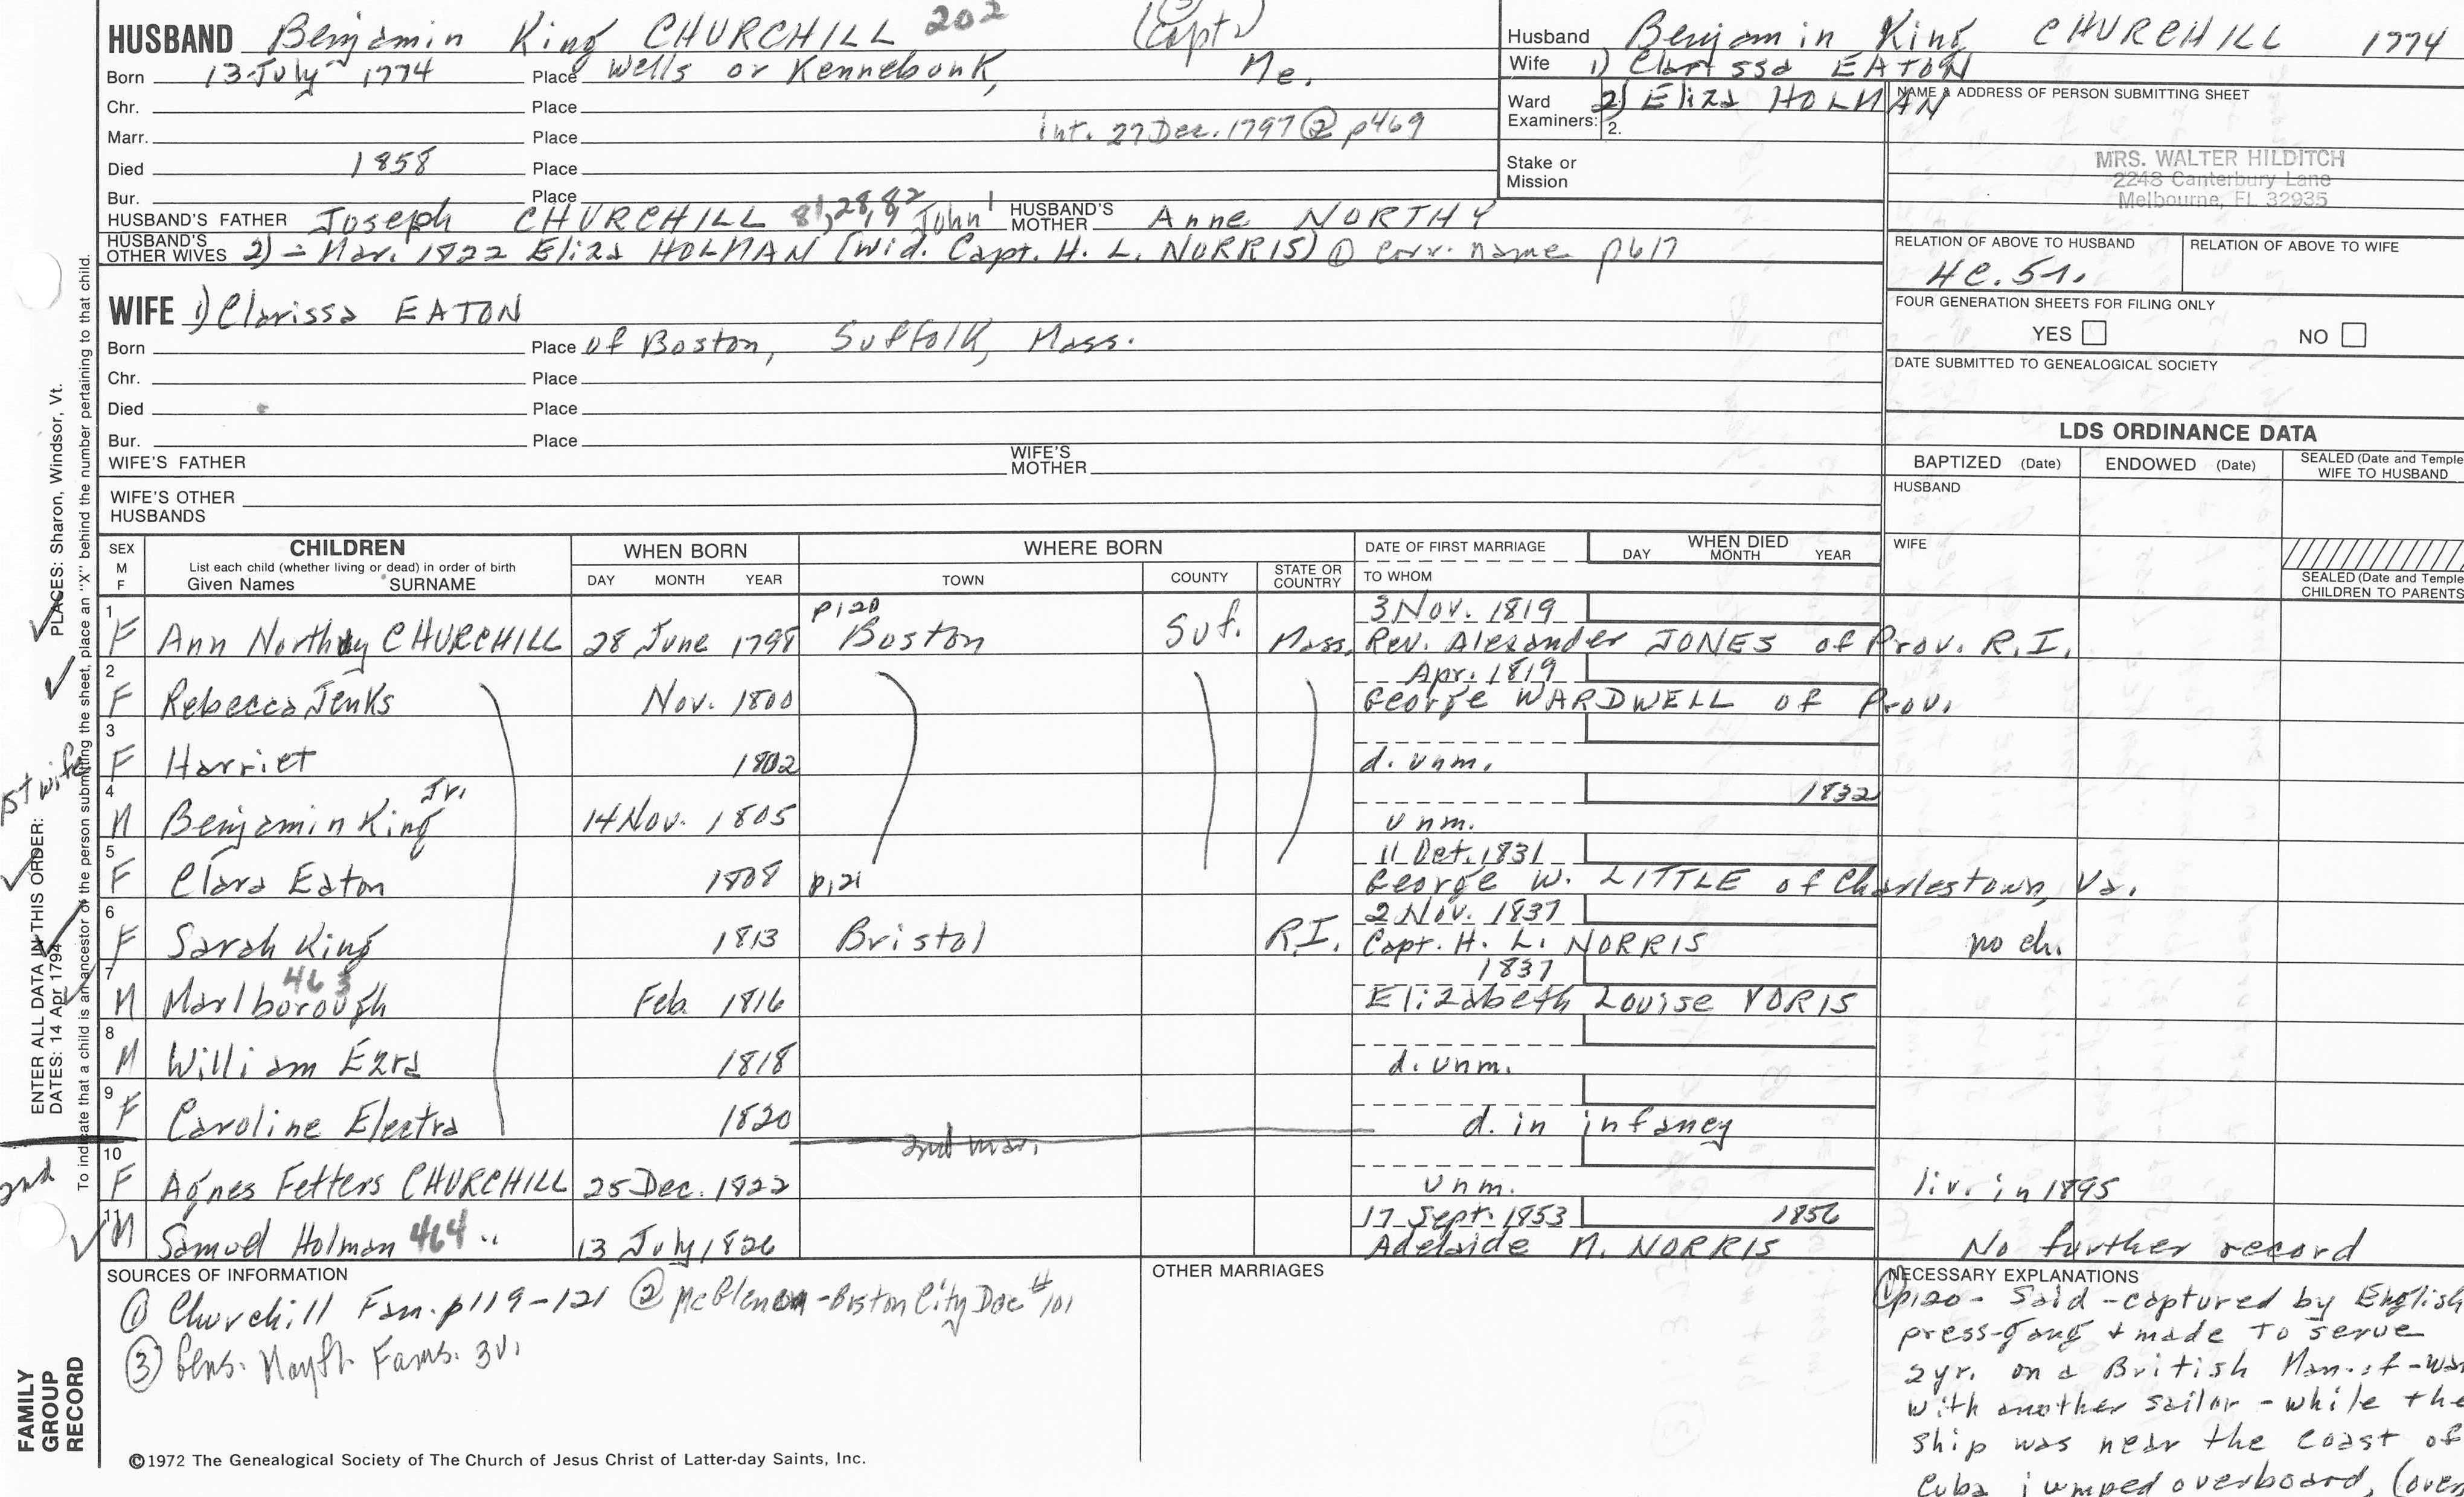 HUSBAND Benjamin King CHURCHILL 202 (Capt)
Born 13 July 1774 Place Wells or Kennebunk, Me.
Chr. Place
Marr. Place Int. 27 Dec. 1797 @ p469
Died 1858 Place
Bur. Place
HUSBAND'S FATHER Joseph CHURCHILL 81,28,82 John1 HUSBAND'S MOTHER Anne NORTHY
HUSBAND'S OTHER WIVES 2) - Mar. 1822 Eliza HOLMAN (wid. Capt. H. L. NORRIS) ① corr. name p617
WIFE 1) Clarissa EATON
Born Place of Boston, Suffolk, Mass.
Chr. Place
Died Place
Bur. Place
WIFE'S FATHER WIFE'S MOTHER
WIFE'S OTHER HUSBANDS
Husband Benjamin King CHURCHILL 1774
Wife 1) Clarissa EATON
2) Eliza HOLMAN
Ward
Examiners: 2.
Stake or
Mission
NAME & ADDRESS OF PERSON SUBMITTING SHEET
MRS. WALTER HILDITCH
2248 Canterbury Lane
Melbourne, FL 32935
RELATION OF ABOVE TO HUSBAND RELATION OF ABOVE TO WIFE
4C.5r.
FOUR GENERATION SHEETS FOR FILING ONLY
YES NO
DATE SUBMITTED TO GENEALOGICAL SOCIETY
LDS ORDINANCE DATA
BAPTIZED (Date) ENDOWED (Date) SEALED (Date and Temple) WIFE TO HUSBAND
HUSBAND
WIFE
SEALED (Date and Temple) CHILDREN TO PARENTS
SEX M F
CHILDREN
List each child (whether living or dead) in order of birth
Given Names SURNAME
WHEN BORN
DAY MONTH YEAR
WHERE BORN
TOWN COUNTY STATE OR COUNTRY
DATE OF FIRST MARRIAGE
TO WHOM
WHEN DIED
DAY MONTH YEAR
1 p120 3 Nov. 1819
F Ann Northey CHURCHILL 28 June 1798 Boston Suf. Mass. Rev. Alexander JONES of Prov. R.I.
2 Apr. 1819
F Rebecca Jenks Nov. 1800 George WARDWELL of Prov.
3
F Harriet 1802 d. unm.
4 Jr. 1832
M Benjamin King 14 Nov. 1805 unm.
5 11 Oct. 1831
F Clara Eaton 1808 p121 George W. LITTLE of Charlestown, Va.
6 2 Nov. 1837
F Sarah King 1813 Bristol R.I. Capt. H. L. NORRIS no ch.
7 463 1837
M Marlborough Feb. 1816 Elizabeth Louise VORIS
8
M William Ezra 1818 d. unm.
9
F Caroline Electra 1820 d. in infancy
2nd mar.
10
F Agnes Fetters CHURCHILL 25 Dec. 1822 unm. liv. in 1895
11 17 Sept. 1853 1856
M Samuel Holman 464 " 13 July 1826 Adelaide N. NORRIS No further record
SOURCES OF INFORMATION
① Churchill Fam. p119-121 ② McGlenen - Boston City Doc #101
③ Gens. Mayfl. Fams. 3v.
OTHER MARRIAGES
NECESSARY EXPLANATIONS
① p120 - Said - captured by English
press-gang & made to serve
2 yr. on a British Man-of-War
with another sailor - while the
ship was near the coast of
Cuba jumped overboard, (over
©1972 The Genealogical Society of The Church of Jesus Christ of Latter-day Saints, Inc.
FAMILY
GROUP
RECORD
ENTER ALL DATA IN THIS ORDER:
DATES: 14 Apr 1794
PLACES: Sharon, Windsor, Vt.
To indicate that a child is an ancestor of the person submitting the sheet, place an "X" behind the number pertaining to that child.
1st wife
2nd